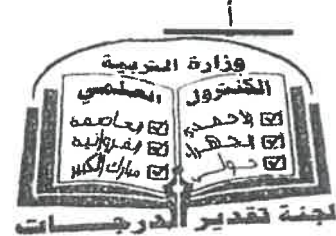 أ
وزارة التربية
الكنترول العلمي
☑ الأحمدي ☑ العاصمة
☑ الجهراء ☑ الفروانية
☑ حولي ☑ مبارك الكبير
لجنة تقدير الدرجات